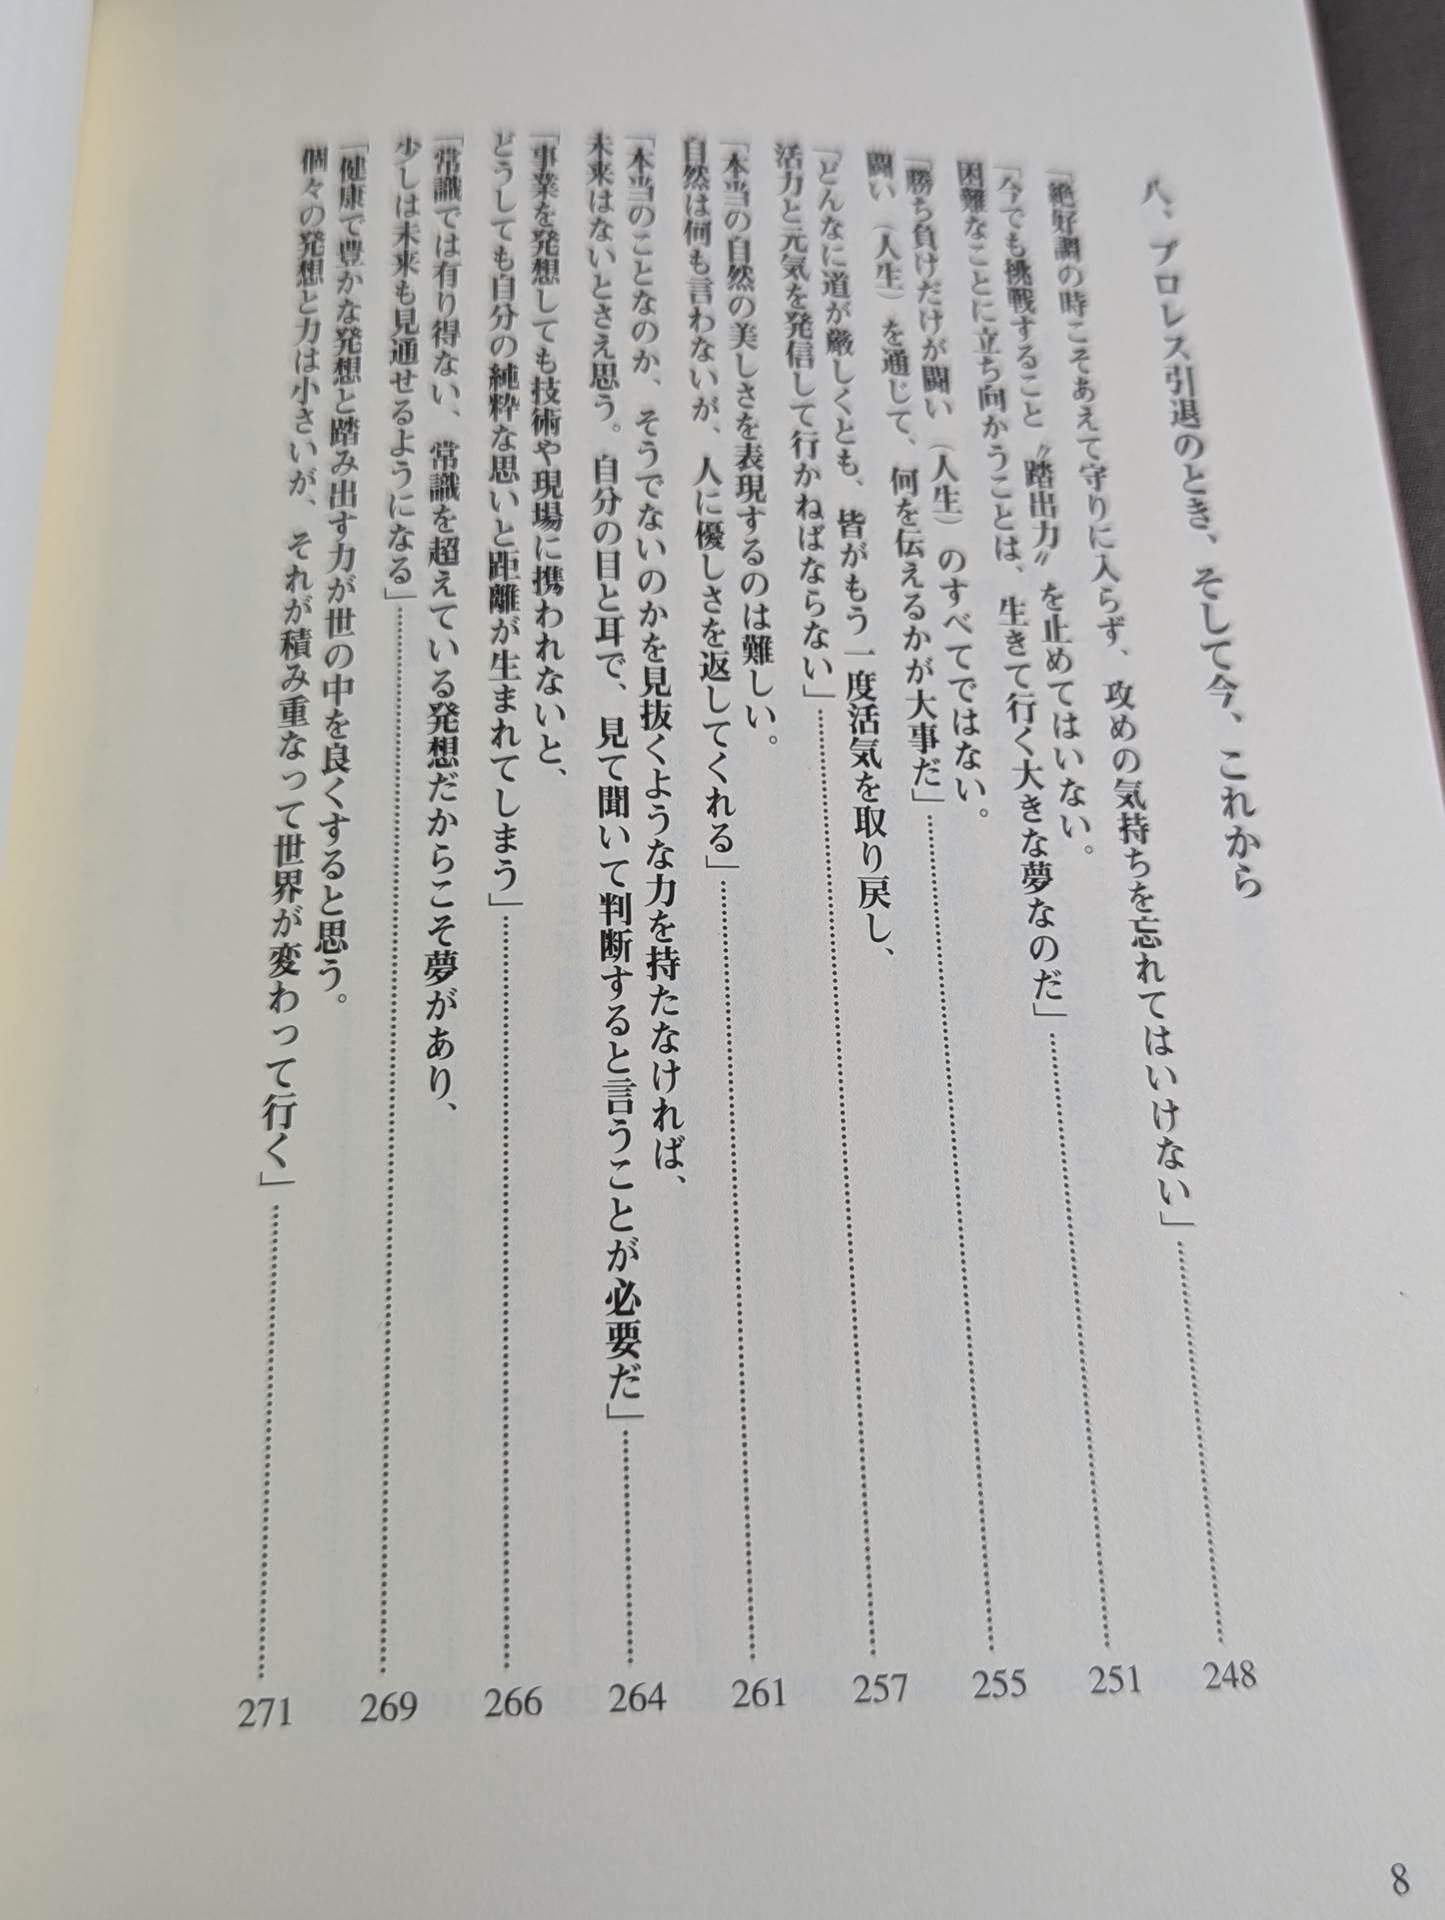 八、プロレス引退のとき、そして今、これから
「絶好調の時こそあえて守りに入らず、攻めの気持ちを忘れてはいけない」…… 248
「今でも挑戦すること〝踏出力〟を止めてはいない。
困難なことに立ち向かうことは、生きて行く大きな夢なのだ」…… 251
「勝ち負けだけが闘い（人生）のすべてではない。
闘い（人生）を通じて、何を伝えるかが大事だ」…… 255
「どんなに道が厳しくとも、皆がもう一度活気を取り戻し、
活力と元気を発信して行かねばならない」…… 257
「本当の自然の美しさを表現するのは難しい。
自然は何も言わないが、人に優しさを返してくれる」…… 261
「本当のことなのか、そうでないのかを見抜くような力を持たなければ、
未来はないとさえ思う。自分の目と耳で、見て聞いて判断すると言うことが必要だ」…… 264
「事業を発想しても技術や現場に携われないと、
どうしても自分の純粋な思いと距離が生まれてしまう」…… 266
「常識では有り得ない、常識を超えている発想だからこそ夢があり、
少しは未来も見通せるようになる」…… 269
「健康で豊かな発想と踏み出す力が世の中を良くすると思う。
個々の発想と力は小さいが、それが積み重なって世界が変わって行く」…… 271
8